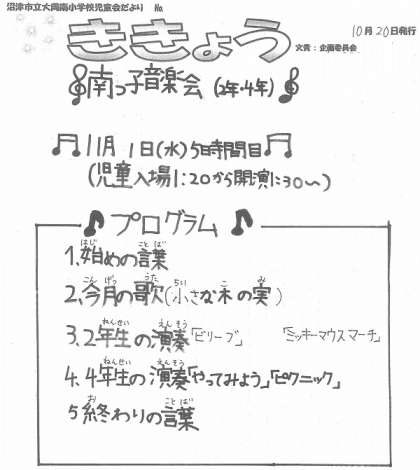 沼津市立大岡南小学校児童会だより No
ききょう
10月20日発行
文責：企画委員会
南っ子音楽会（2年・4年）
11月1日（水）5時間目
（児童入場1:20から開演1:30〜）
プログラム
1、始めの言葉
2、今月の歌（小さな木の実）
3、2年生の演奏「ビリーブ」「ミッキーマウスマーチ」
4、4年生の演奏「やってみよう」「ピクニック」
5 終わりの言葉